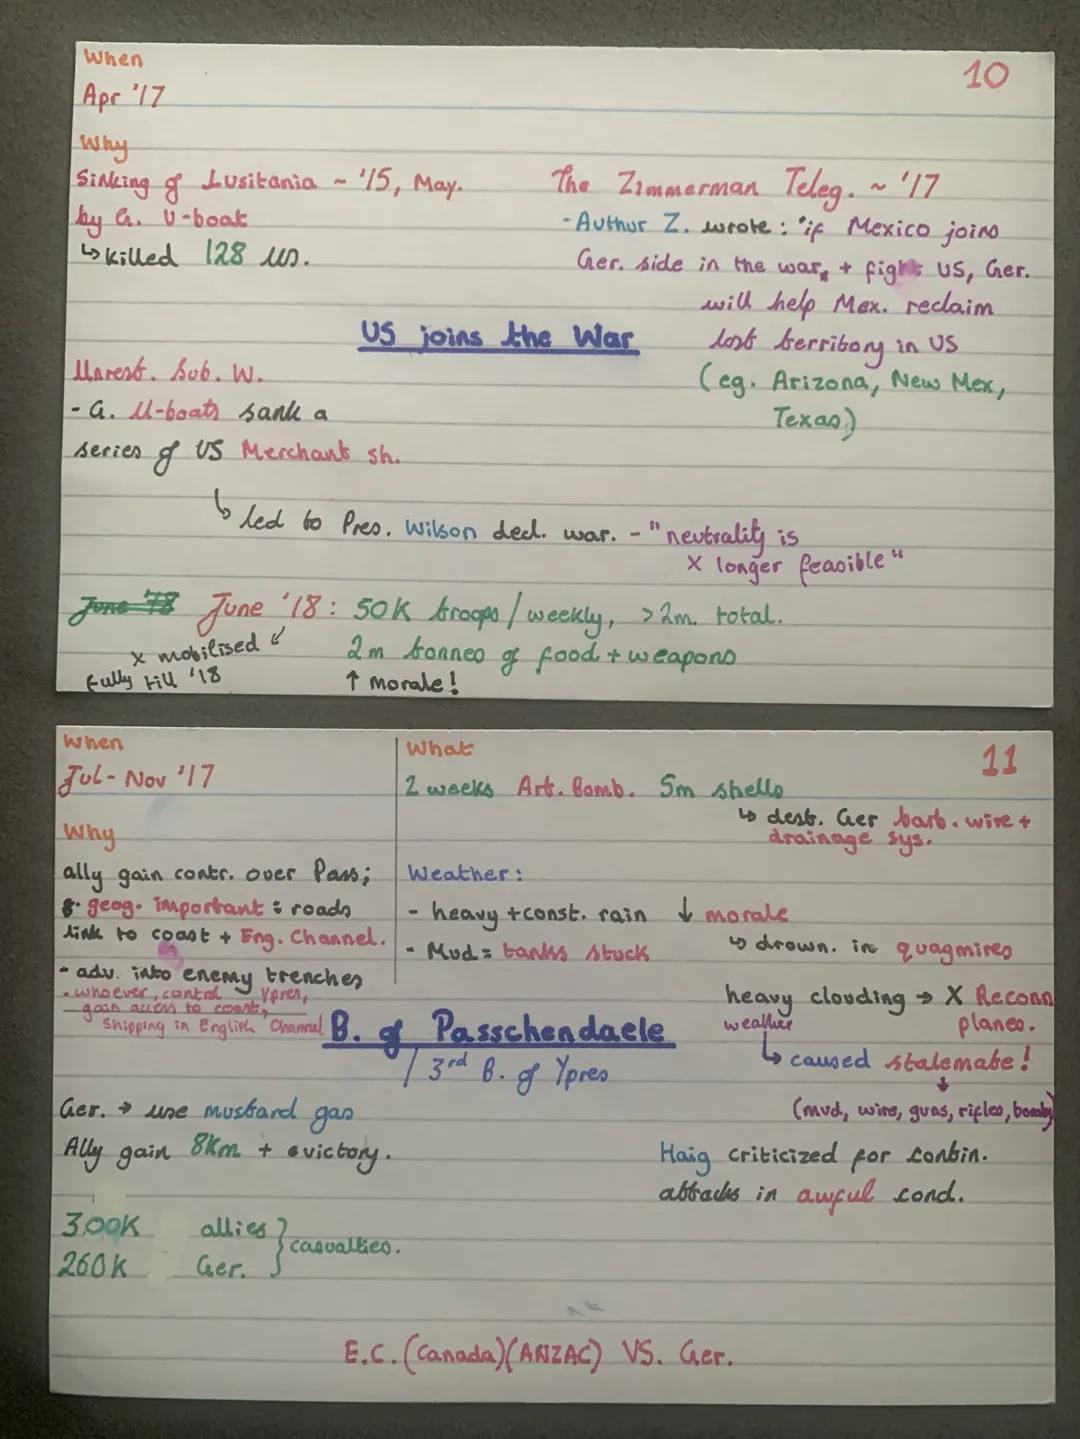 When
10
Apr '17
Why
Sinking of Lusitania ~ '15, May.
by G. U-boat
↳ killed 128 US.
The Zimmerman Teleg. ~ '17
- Authur Z. wrote: "if Mexico joins
Ger. side in the war, + fight US, Ger.
will help Mex. reclaim
lost territory in US
(eg. Arizona, New Mex,
Texas)
US joins the War
Unrest. Sub. W.
- G. U-boats sank a
series of US Merchant sh.
↳ led to Pres. Wilson decl. war. - "neutrality is
X longer feasible"
June '18: 50K troops / weekly, >2m. total.
X mobilised
fully till '18
2m tonnes of food + weapons
↑ morale!
When
Jul - Nov '17
Why
ally gain contr. over Pass;
geog. important : roads
link to coast + Eng. Channel.
- adv. into enemy trenches
- whoever, control Ypres,
gain access to coast,
shipping in English Channel
What
11
2 weeks Art. Bomb. 5m shells
↳ dest. Ger barb. wire +
drainage sys.
Weather:
- heavy + const. rain ↓ morale
- Mud = tanks stuck
↳ drown. in quagmires
heavy clouding → X Reconn
weather
planes.
↳ caused stalemate!
↓
(mud, wire, guns, rifles, bombs)
B. of Passchendaele
/ 3rd B. of Ypres
Ger. → use mustard gas
Ally gain 8km + victory.
Haig criticized for contin.
attacks in awful cond.
300K allies } casualties.
260K Ger.
E.C. (Canada)(ANZAC) VS. Ger.